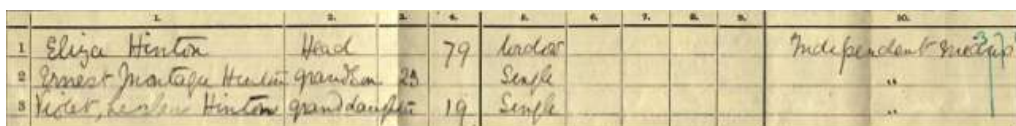 1. 2. 3. 4. 5. 6. 7. 8. 9. 10.
1 Eliza Hinton Head 79 Widow Independent Means
2 Ernest Montague Hinton grandson 23 Single "
3 Violet, Hinton granddaughter 19 Single "